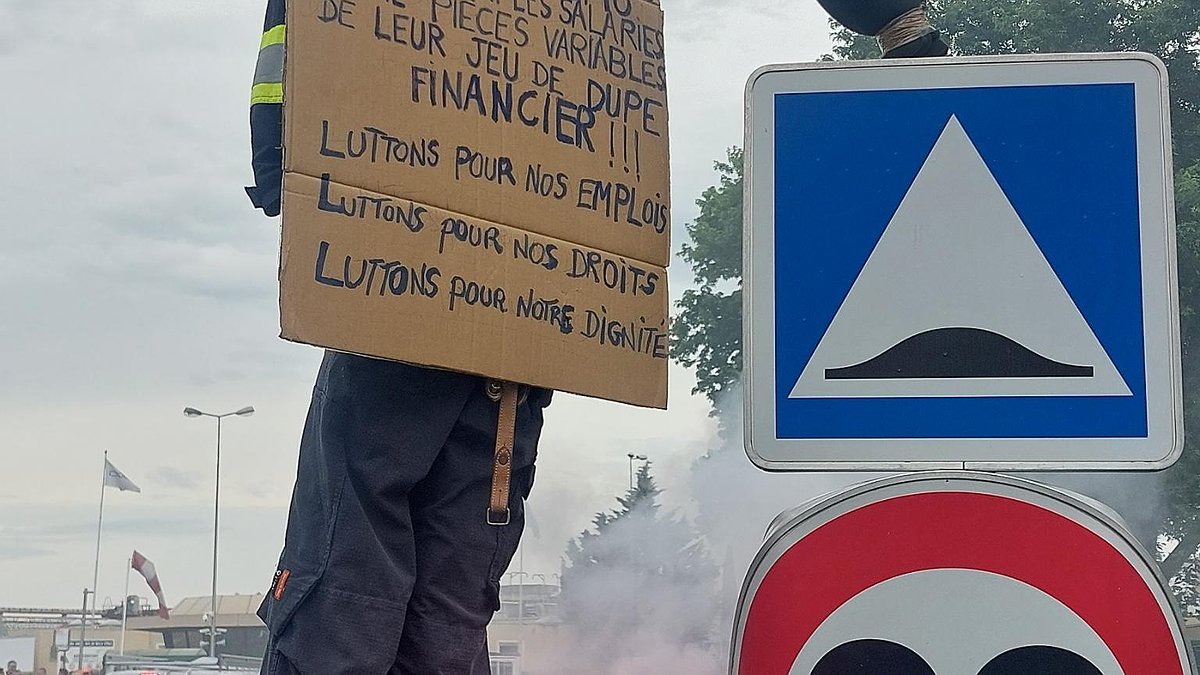 LES SALARIÉS
PIÈCES VARIABLES
DE LEUR JEU DE DUPE
FINANCIER !!!
LUTTONS POUR NOS EMPLOIS
LUTTONS POUR NOS DROITS
LUTTONS POUR NOTRE DIGNITÉ